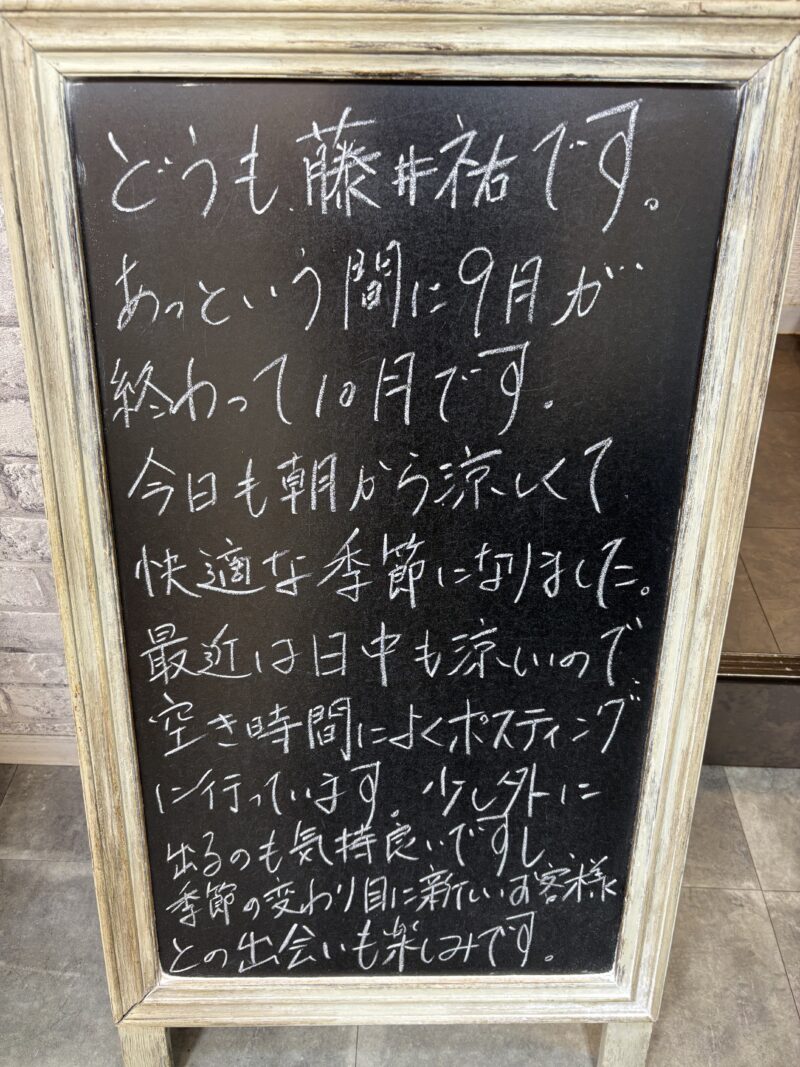 どうも、藤井祐です。
あっという間に9月が
終わって10月です。
今日も朝から涼しくて
快適な季節になりました。
最近は日中も涼しいので、
空き時間によくポスティング
に行っています。少し外に
出るのも気持良いですし
季節の変わり目に新しいお客様
との出会いも楽しみです。